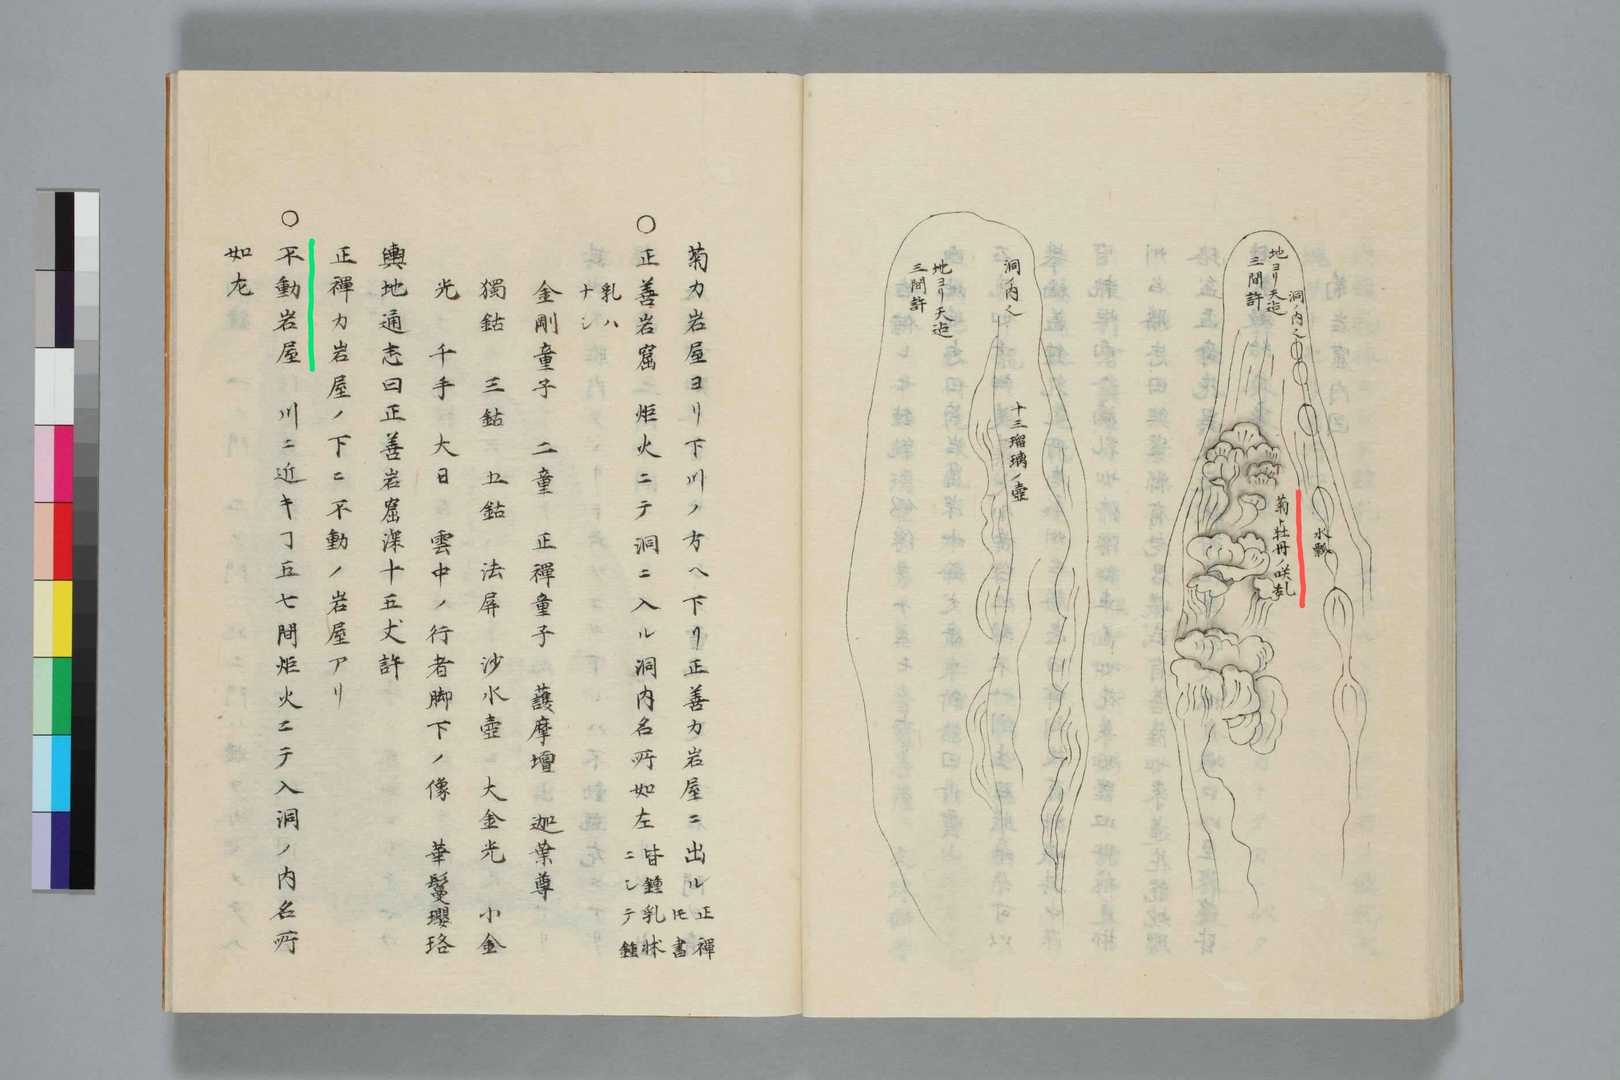 洞内之
地ヨリ天迄
三間許
水瓢
菊ト牡丹ノ咲乱
洞ノ内之
地ヨリ天迄
三間許
十三瑠璃ノ壺
菊カ岩屋ヨリ下川ノ方ヘ下リ正善カ岩屋ニ出ル正禪
トモ書
○正善岩窟 炬火ニテ洞ニ入ル洞内名所如左皆鍾乳牀
ニシテ鍾
乳ハ
ナシ
金剛童子 二童 正禪童子 護摩壇 迦葉尊
獨鈷 三鈷 五鈷 法屏 沙水壺 大金光 小金
光 千手 大日 雲中ノ行者脚下ノ像 華鬘瓔珞
輿地通志曰正善岩窟深十五丈許
正禪カ岩屋ノ下ニ不動ノ岩屋アリ
○不動岩屋 川ニ近キヿ五七間炬火ニテ入洞ノ内名所
如左